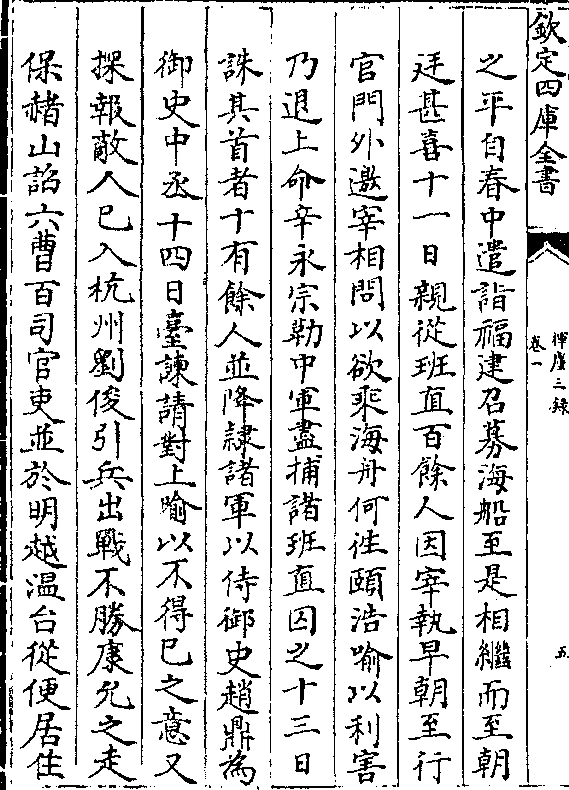 欽定四庫全書
揮麈三錄
卷一
五
之平自春中遣詣福建召募海船至是相繼而至朝
廷甚喜十一日親從班直百餘人因宰執早朝至行
官門外邀宰相問以欲乘海舟何往頤浩喻以利害
乃退上命辛永宗勒中軍盡捕諸班直囚之十三日
誅其首者十有餘人並降隷諸軍以侍御史趙鼎為
御史中丞十四日臺諫請對上喻以不得已之意又
探報敵人已入杭州劉俊引兵出戰不勝康允之走
保赭山詔六曹百司官吏並於明越温台從便居住